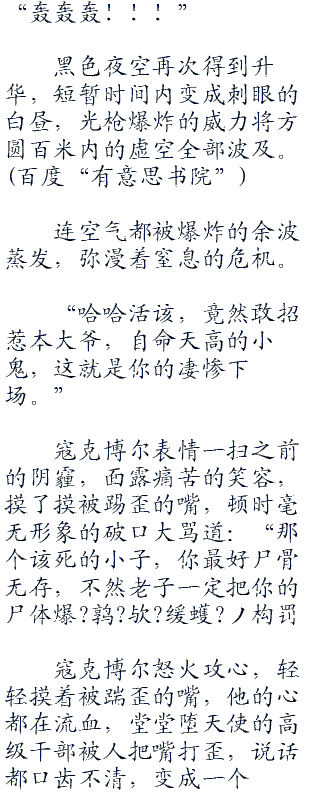 “轰轰轰！！！”
黑色夜空再次得到升
华，短暂时间内变成刺眼的
白昼，光枪爆炸的威力将方
圆百米内的虚空全部波及。
(百度“有意思书院”)
连空气都被爆炸的余波
蒸发，弥漫着窒息的危机。
“哈哈活该，竟然敢招
惹本大爷，自命天高的小
鬼，这就是你的凄惨下
场。”
寇克博尔表情一扫之前
的阴霾，面露痛苦的笑容，
摸了摸被踢歪的嘴，顿时毫
无形象的破口大骂道：“那
个该死的小子，你最好尸骨
无存，不然老子一定把你的
尸体爆?鹑?欤?缓蠖?ノ构罚
寇克博尔怒火攻心，轻
轻摸着被踹歪的嘴，他的心
都在流血，堂堂堕天使的高
级干部被人把嘴打歪，说话
都口齿不清，变成一个